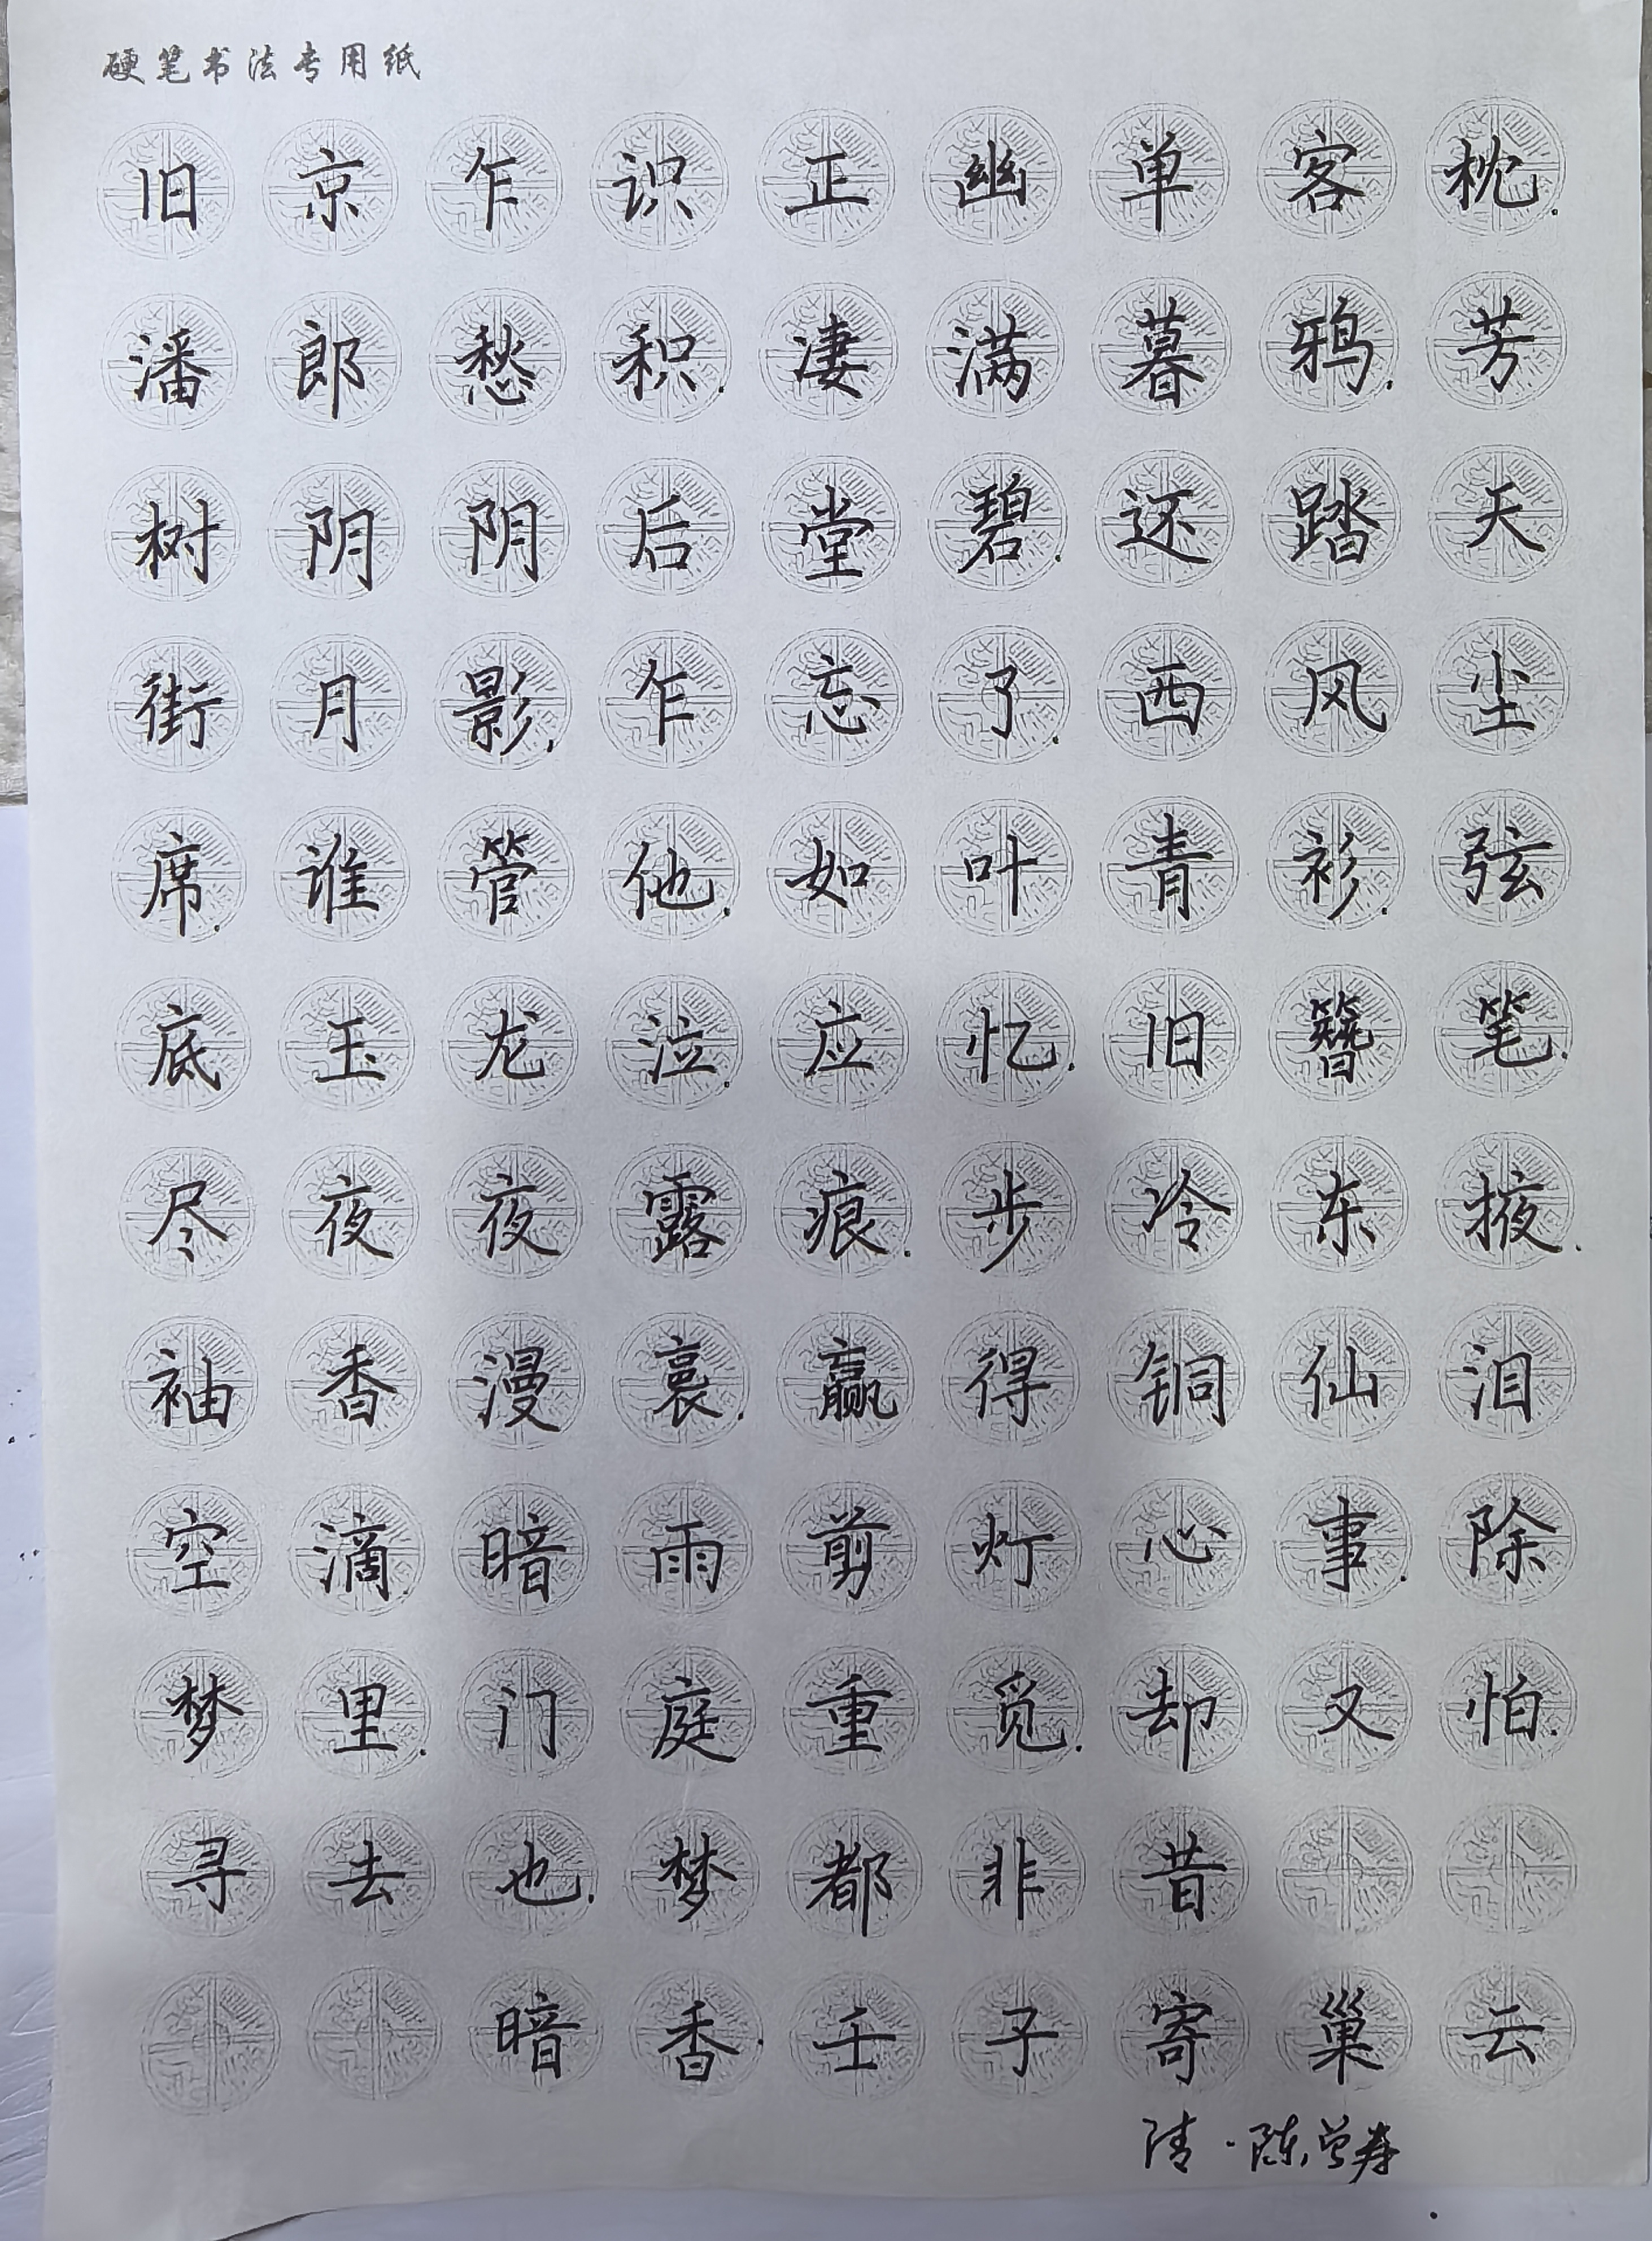 硬笔书法专用纸
旧京乍识正幽单客枕.
潘郎愁积.凄满暮鸦.芳
树阴阴后堂碧.还踏天
街月影.乍忘了.西风尘
席.谁管他.如叶青衫.弦
底玉龙泣.应忆.旧簪笔.
尽夜夜露痕.步冷东掖.
袖香漫裛.赢得铜仙泪
空滴.暗雨剪灯心事.除
梦里.门庭重觅.却又怕.
寻去也.梦都非昔
暗香·壬子寄巢云
清·陈曾寿